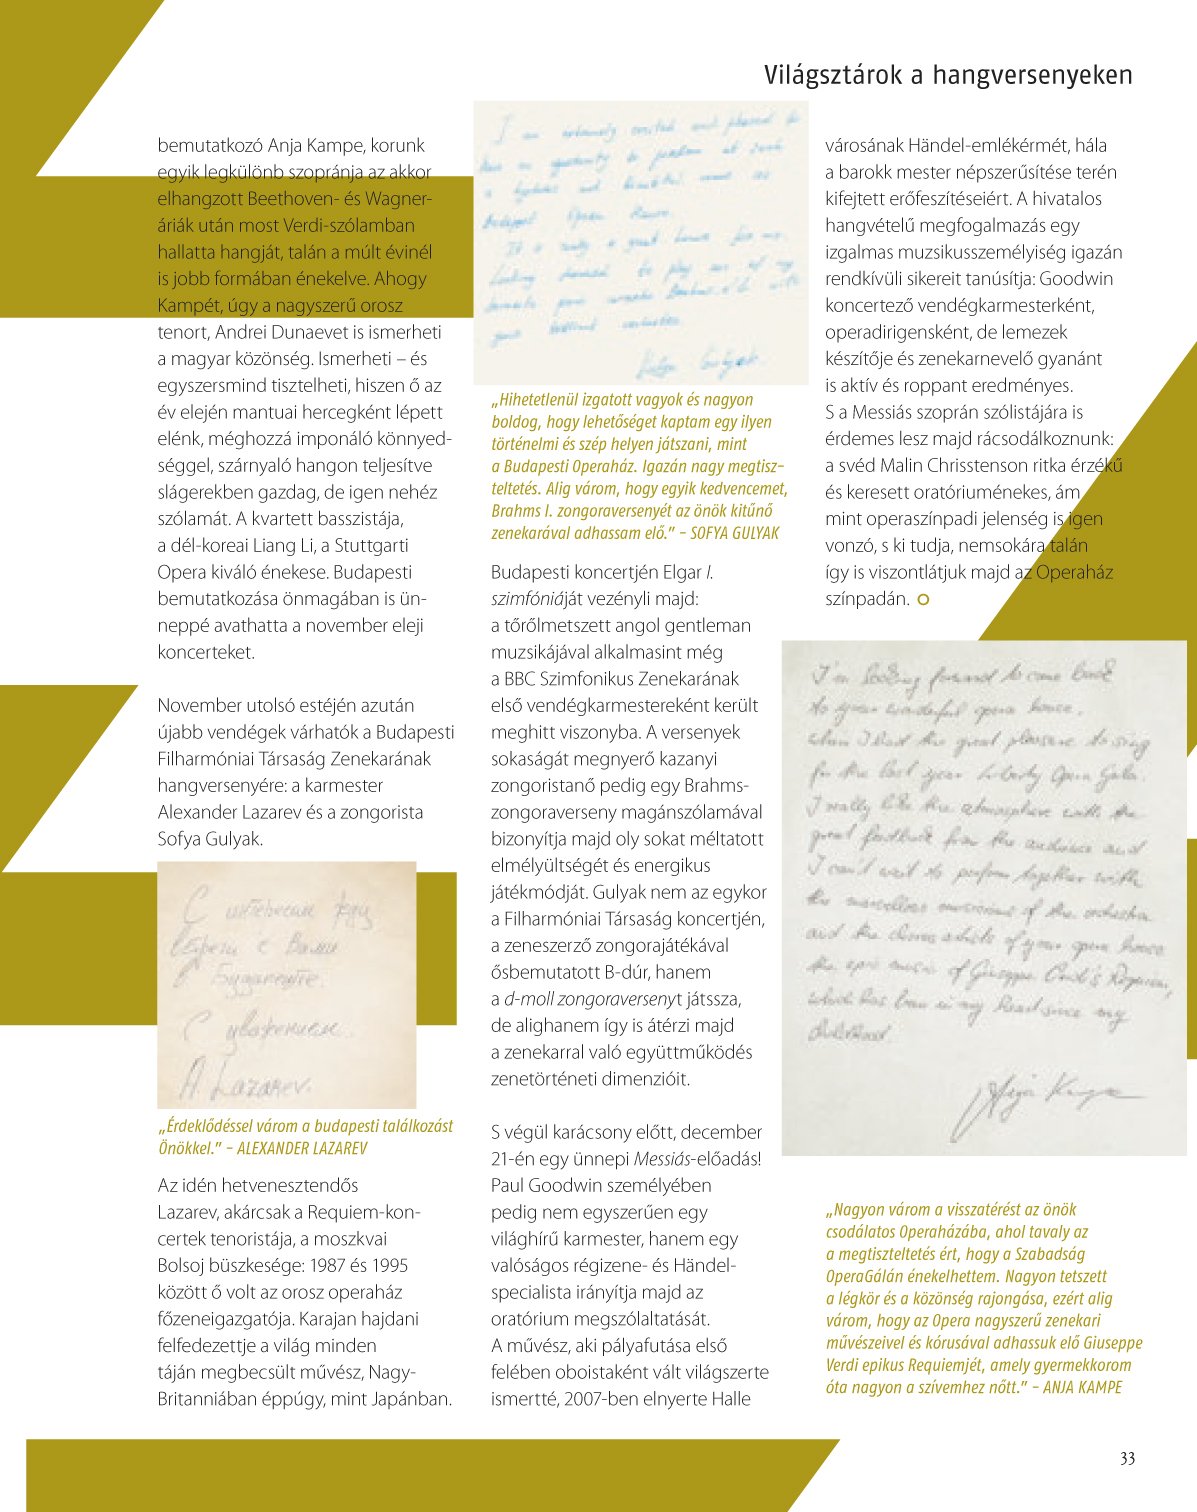 Világsztárok a hangversenyeken
bemutatkozó Anja Kampe, korunk
egyik legkülönb szopránja az akkor
elhangzott Beethoven- és Wagner-
áriák után most Verdi-szólamban
hallatta hangját, talán a múlt évinél
is jobb formában énekelve. Ahogy
Kampét, úgy a nagyszerű orosz
tenort, Andrei Dunaevet is ismerheti
a magyar közönség. Ismerheti – és
egyszersmind tisztelheti, hiszen ő az
év elején mantuai hercegként lépett
elénk, méghozzá imponáló könnyed-
séggel, szárnyaló hangon teljesítve
slágerekben gazdag, de igen nehéz
szólamát. A kvartett basszistája,
a dél-koreai Liang Li, a Stuttgarti
Opera kiváló énekese. Budapesti
bemutatkozása önmagában is ün-
neppé avathatta a november eleji
koncerteket.
November utolsó estéjén azután
újabb vendégek várhatók a Budapesti
Filharmóniai Társaság Zenekarának
hangversenyére: a karmester
Alexander Lazarev és a zongorista
Sofya Gulyak.
С интересом жду
встречи с Вами
в Будапеште.
С уважением.
A. Lazarev.
„Érdeklődéssel várom a budapesti találkozást
Önökkel.” – ALEXANDER LAZAREV
Az idén hetvenesztendős
Lazarev, akárcsak a Requiem-kon-
certek tenoristája, a moszkvai
Bolsoj büszkesége: 1987 és 1995
között ő volt az orosz operaház
főzeneigazgatója. Karajan hajdani
felfedezettje a világ minden
táján megbecsült művész, Nagy-
Britanniában éppúgy, mint Japánban.
I am extremely excited and pleased to
have an opportunity to perform at such
a and beautiful as
Budapest Opera House.
It is really a great honor for me.
Looking forward to play one of my
favorite Brahms with
your
Sofya Gulyak
„Hihetetlenül izgatott vagyok és nagyon
boldog, hogy lehetőséget kaptam egy ilyen
történelmi és szép helyen játszani, mint
a Budapesti Operaház. Igazán nagy megtisz-
teltetés. Alig várom, hogy egyik kedvencemet,
Brahms I. zongoraversenyét az önök kitűnő
zenekarával adhassam elő.” – SOFYA GULYAK
Budapesti koncertjén Elgar I.
szimfóniáját vezényli majd:
a tőrőlmetszett angol gentleman
muzsikájával alkalmasint még
a BBC Szimfonikus Zenekarának
első vendégkarmestereként került
meghitt viszonyba. A versenyek
sokaságát megnyerő kazanyi
zongoristanő pedig egy Brahms-
zongoraverseny magánszólamával
bizonyítja majd oly sokat méltatott
elmélyültségét és energikus
játékmódját. Gulyak nem az egykor
a Filharmóniai Társaság koncertjén,
a zeneszerző zongorajátékával
ősbemutatott B-dúr, hanem
a d-moll zongoraversenyt játssza,
de alighanem így is átérzi majd
a zenekarral való együttműködés
zenetörténeti dimenzióit.
S végül karácsony előtt, december
21-én egy ünnepi Messiás-előadás!
Paul Goodwin személyében
pedig nem egyszerűen egy
világhírű karmester, hanem egy
valóságos régizene- és Händel-
specialista irányítja majd az
oratórium megszólaltatását.
A művész, aki pályafutása első
felében oboistaként vált világszerte
ismertté, 2007-ben elnyerte Halle
városának Händel-emlékérmét, hála
a barokk mester népszerűsítése terén
kifejtett erőfeszítéseiért. A hivatalos
hangvételű megfogalmazás egy
izgalmas muzsikusszemélyiség igazán
rendkívüli sikereit tanúsítja: Goodwin
koncertező vendégkarmesterként,
operadirigensként, de lemezek
készítője és zenekarnevelő gyanánt
is aktív és roppant eredményes.
S a Messiás szoprán szólistájára is
érdemes lesz majd rácsodálkoznunk:
a svéd Malin Chrisstenson ritka érzékű
és keresett oratóriuménekes, ám
mint operaszínpadi jelenség is igen
vonzó, s ki tudja, nemsokára talán
így is viszontlátjuk majd az Operaház
színpadán.
I'm looking forward to come back
to your wonderful opera house,
when I had the great pleasure to sing
for the last year Liberty Opera Gala.
I really like the atmosphere with the
great feedback from the audience and
I can't wait to perform together with
the marvellous musicians of the orchestra
and the chorus artists of your opera house
the epic music of Giuseppe Verdi's Requiem,
which has been in my heart since my
childhood.
Anja Kampe
„Nagyon várom a visszatérést az önök
csodálatos Operaházába, ahol tavaly az
a megtiszteltetés ért, hogy a Szabadság
OperaGálán énekelhettem. Nagyon tetszett
a légkör és a közönség rajongása, ezért alig
várom, hogy az Opera nagyszerű zenekari
művészeivel és kórusával adhassuk elő Giuseppe
Verdi epikus Requiemjét, amely gyermekkorom
óta nagyon a szívemhez nőtt.” – ANJA KAMPE
33